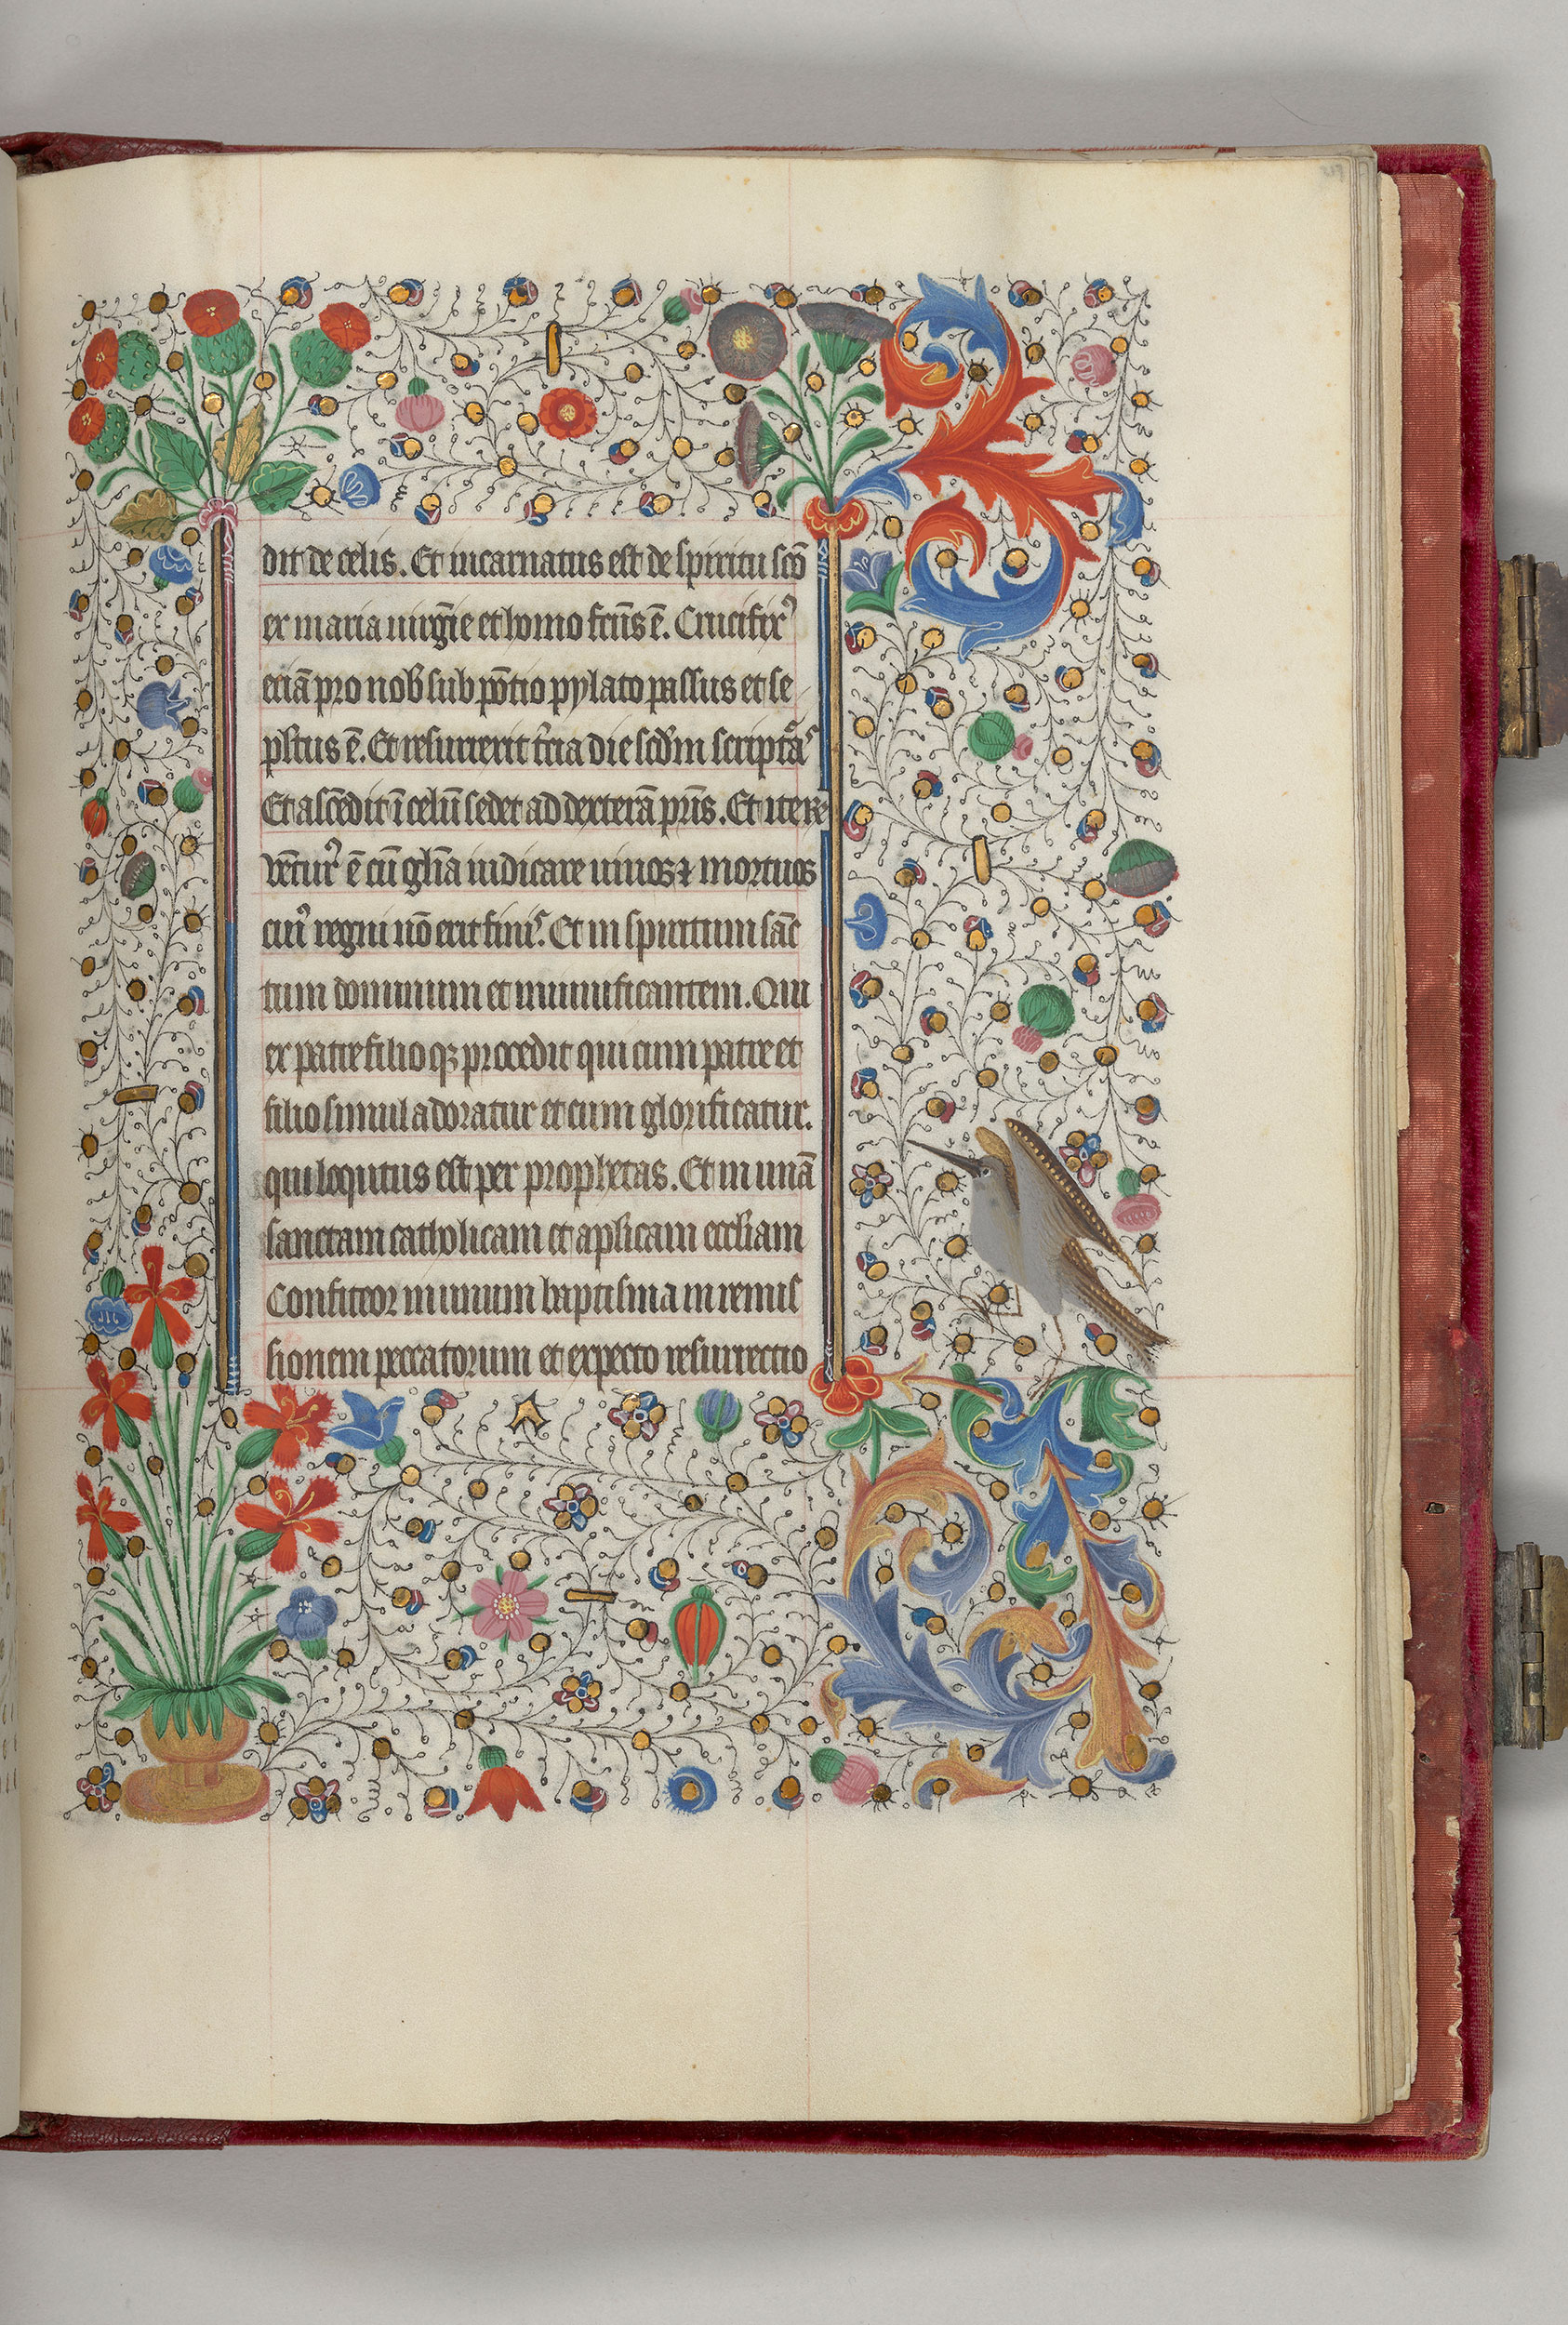 dit de celis. Et incarnatus est de spiritu sc̄o
ex maria uirgīe et homo fc̄us ē. Crucifix⁹
eciā pro nob̄ sub pōtio pylato passus et se
pl̄tus ē. Et resurrexit t̄cia die sc̄dm scriptāˢ
Et ascēdit ī celū sedet ad dexterā pr̄is. Et iter
vētur⁹ ē cū gl̄ia iudicare uiuos ⁊ mortuos
cui⁹ regni nō erit finiˢ. Et in spiritum sāc
tum dominum et uiuificantem. Qui
ex patre filioqꝫ procedit qui cum patre et
filio simul adoratur et cum glorificatur.
qui loqutus est per prophetas. Et in unā
sanctam catholicam et apl̄icam eccl̄iam
Confiteor in unum baptisma in remis
sionem peccatorum et expecto resurrectio